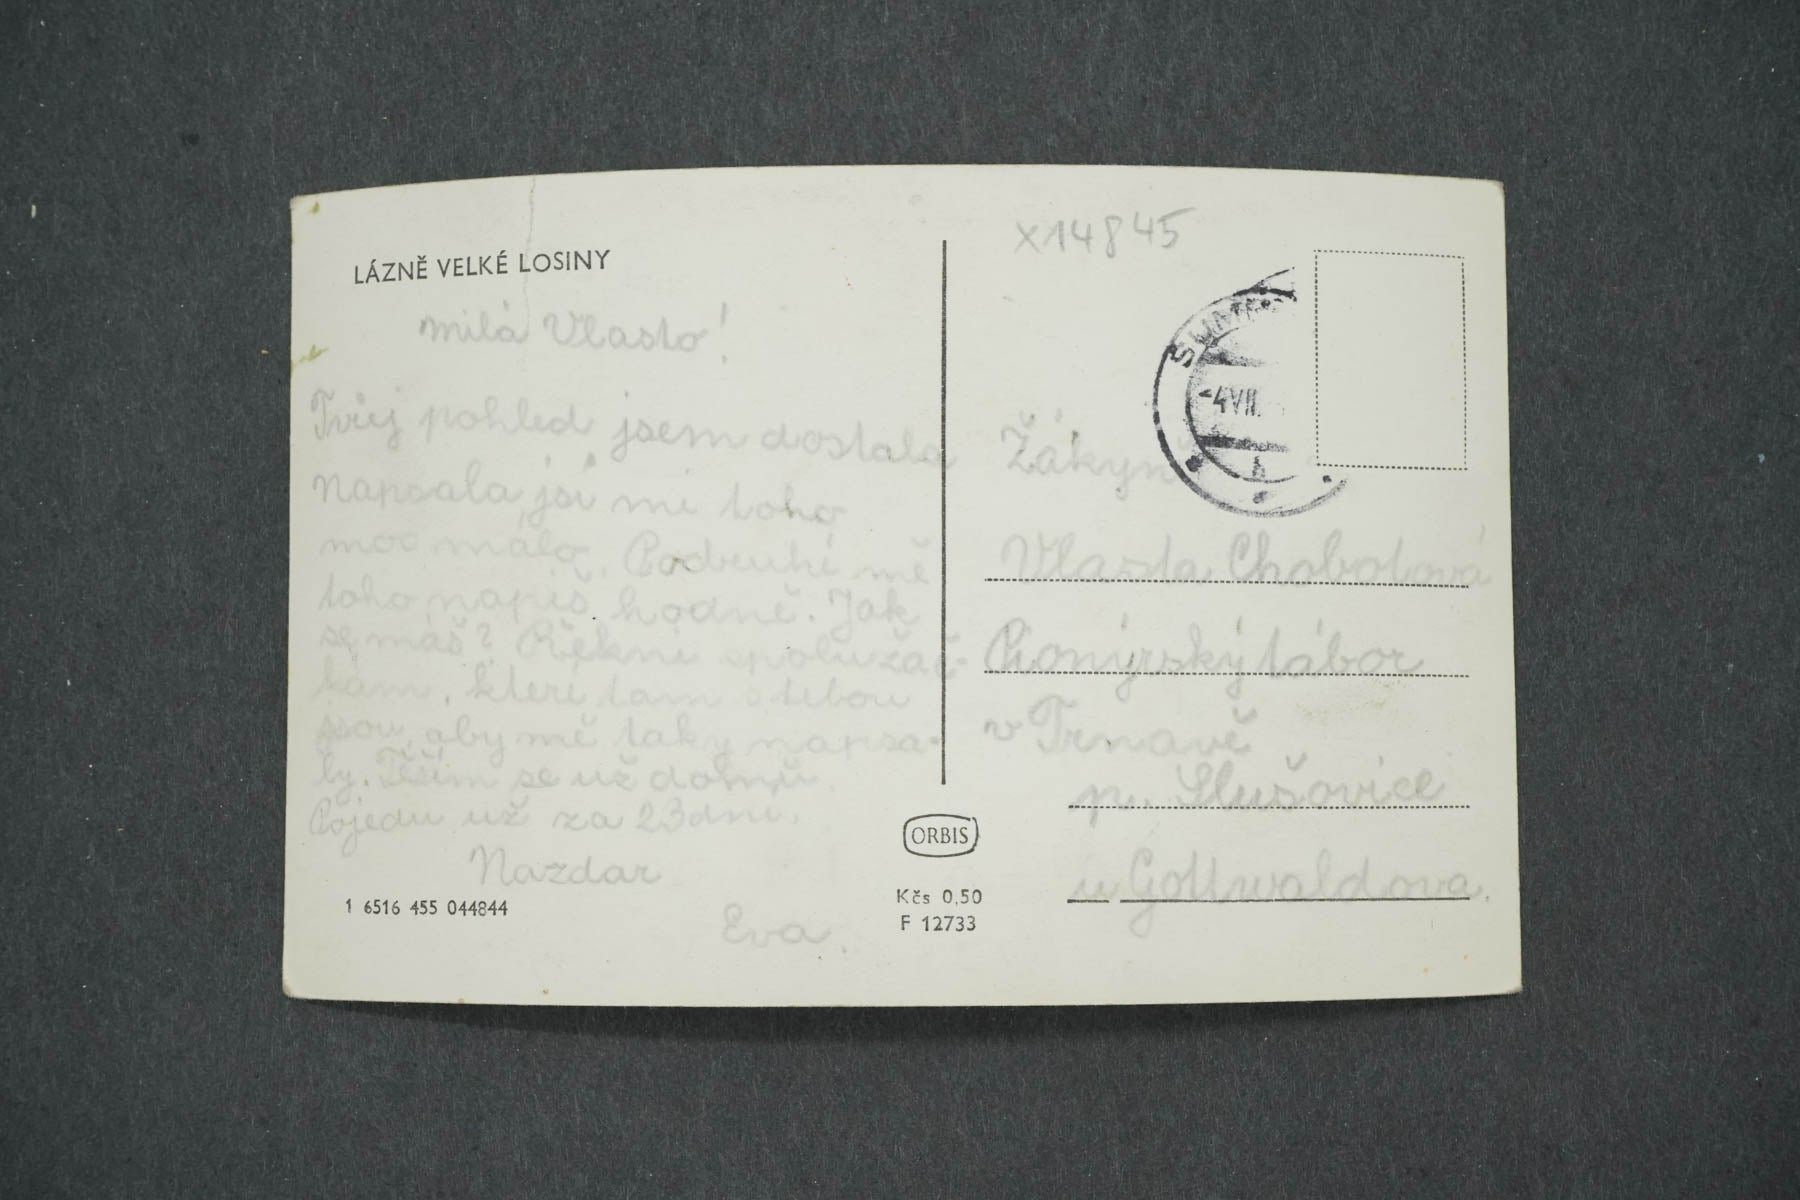 LÁZNĚ VELKÉ LOSINY
Milá Vlasto!
Tvůj pohled jsem dostala
Napsala jsi mi toho
moc málo. Podruhé mě
toho napiš hodně. Jak
se máš? Řekni spolužač-
kám, které tam s tebou
jsou, aby mě taky napsa-
ly. Těším se už domů.
Pojedu už za 23 dní.
Nazdar
Eva.
1 6516 455 044844
ORBIS
Kčs 0,50
F 12733
x14845
-4.VII.
Žákyně
Vlasta Chobotová
Pionýrský tábor
v Trnavě
p. Slušovice
u Gottwaldova.